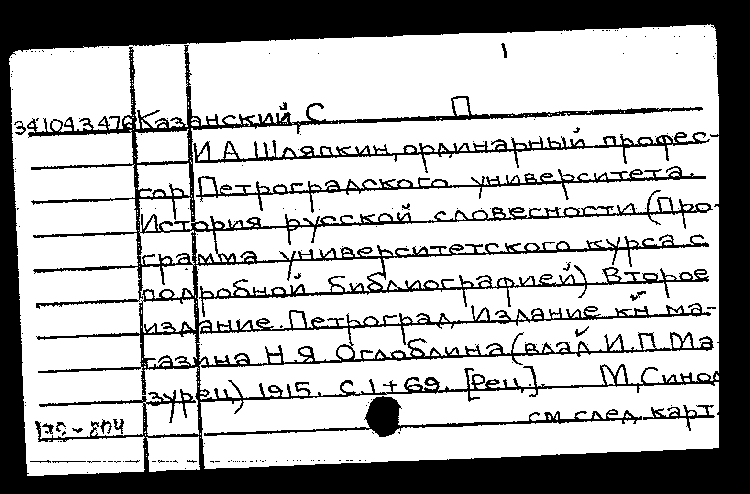 1
34.104.3.476 Казанский, С П
И А Шляпкин, ординарный профес-
сор Петроградского университета.
История русской словесности (Про-
грамма университетского курса с
подробной библиографией) Второе
издание. Петроград. Издание кн ма-
газина Н.Я Оглоблина (влад И.П Ма
зурец) 1915. С. I + 69. [Рец.]. М, Синод
см след. карт.